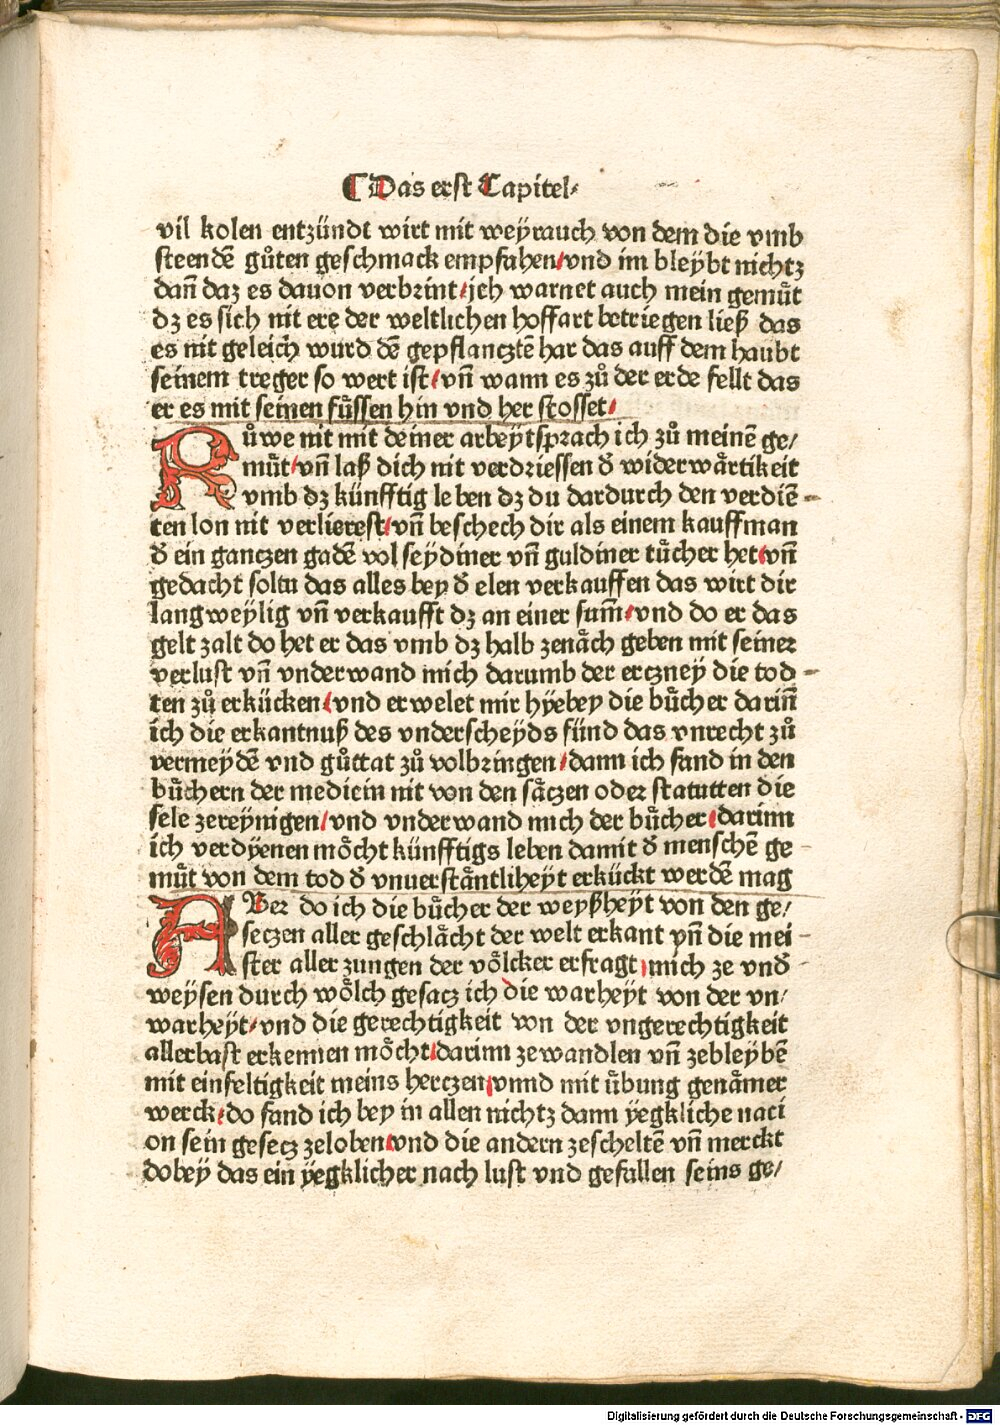 ¶ Das erst Capitel·
vil kolen entzündt wirt mit weÿrauch von dem die vmb
steendē gůten geschmack empfahen/vnd im bleybt nichtz
dañ daz es dauon verbrint/ich warnet auch mein gemuͤt
dz es sich nit ere der weltlichen hoffart betriegen ließ das
es nit geleich wurd dē gepflancztē har das auff dem haubt
seinem treger so wert ist/vñ wann es zů der erde fellt das
er es mit seinen fuͤssen hin vnd her stosset/
Růwe nit mit deiner arbeytsprach ich zů meinē ge/
muͤt/vñ laß dich nit verdriessen đ widerwaͤrtikeit
vmb dz künfftig leben dz du dardurch den verdiē-
ten lon nit verlierest/vñ beschech dir als einem kauffman
đ ein ganczen gadē vol seydiner vñ guldiner tuͤcher het/vñ
gedacht soltu das alles bey đ elen verkauffen das wirt dir
langweylig vñ verkaufft dz an einer sum̃/vnd do er das
gelt zalt do het er das vmb dz halb zenaͤch geben mit seiner
verlust vñ vnderwand mich darumb der erczneÿ die tod-
ten zů erkücken/vnd erwelet mir hÿebey die buͤcher dariñ
ich die erkantnuß des vnderscheyds fünd das vnrecht zů
vermeydē vnd gůttat zů volbringen/dann ich fand in den
buͤchern der medicin nit von den saͤczen oder statutten die
sele zereÿnigen/vnd vnderwand mich der buͤcher/darinn
ich verdÿenen moͤcht künfftigs leben damit đ menschē ge-
muͤt von dem tod đ vnuerstaͤntliheÿt erkückt werdē mag
ABer do ich die buͤcher der weyßheÿt von den ge/
seczen aller geschlaͤcht der welt erkant vñ die mei-
ster aller zungen der voͤlcker erfragt/mich ze vnđ-
weÿsen durch woͤlch gesacz ich die warheÿt von der vn/
warheÿt/vnd die gerechtigkeit von der vngerechtigkeit
allerbast erkennen moͤcht/darinn zewandlen vñ zebleÿbē
mit einfeltigkeit meins herczen/vnnd mit uͤbung genaͤmer
werck/do fand ich bey in allen nichtz dann ÿegkliche naci
on sein gesecz zeloben/vnd die andern zescheltē vñ merckt
dobeÿ das ein ÿegklicher nach lust vnd gefallen seins ge/
Digitalisierung gefördert durch die Deutsche Forschungsgemeinschaft - DFG